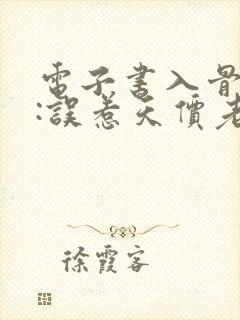 電子書入骨
:誤惹天價老
徐霞客